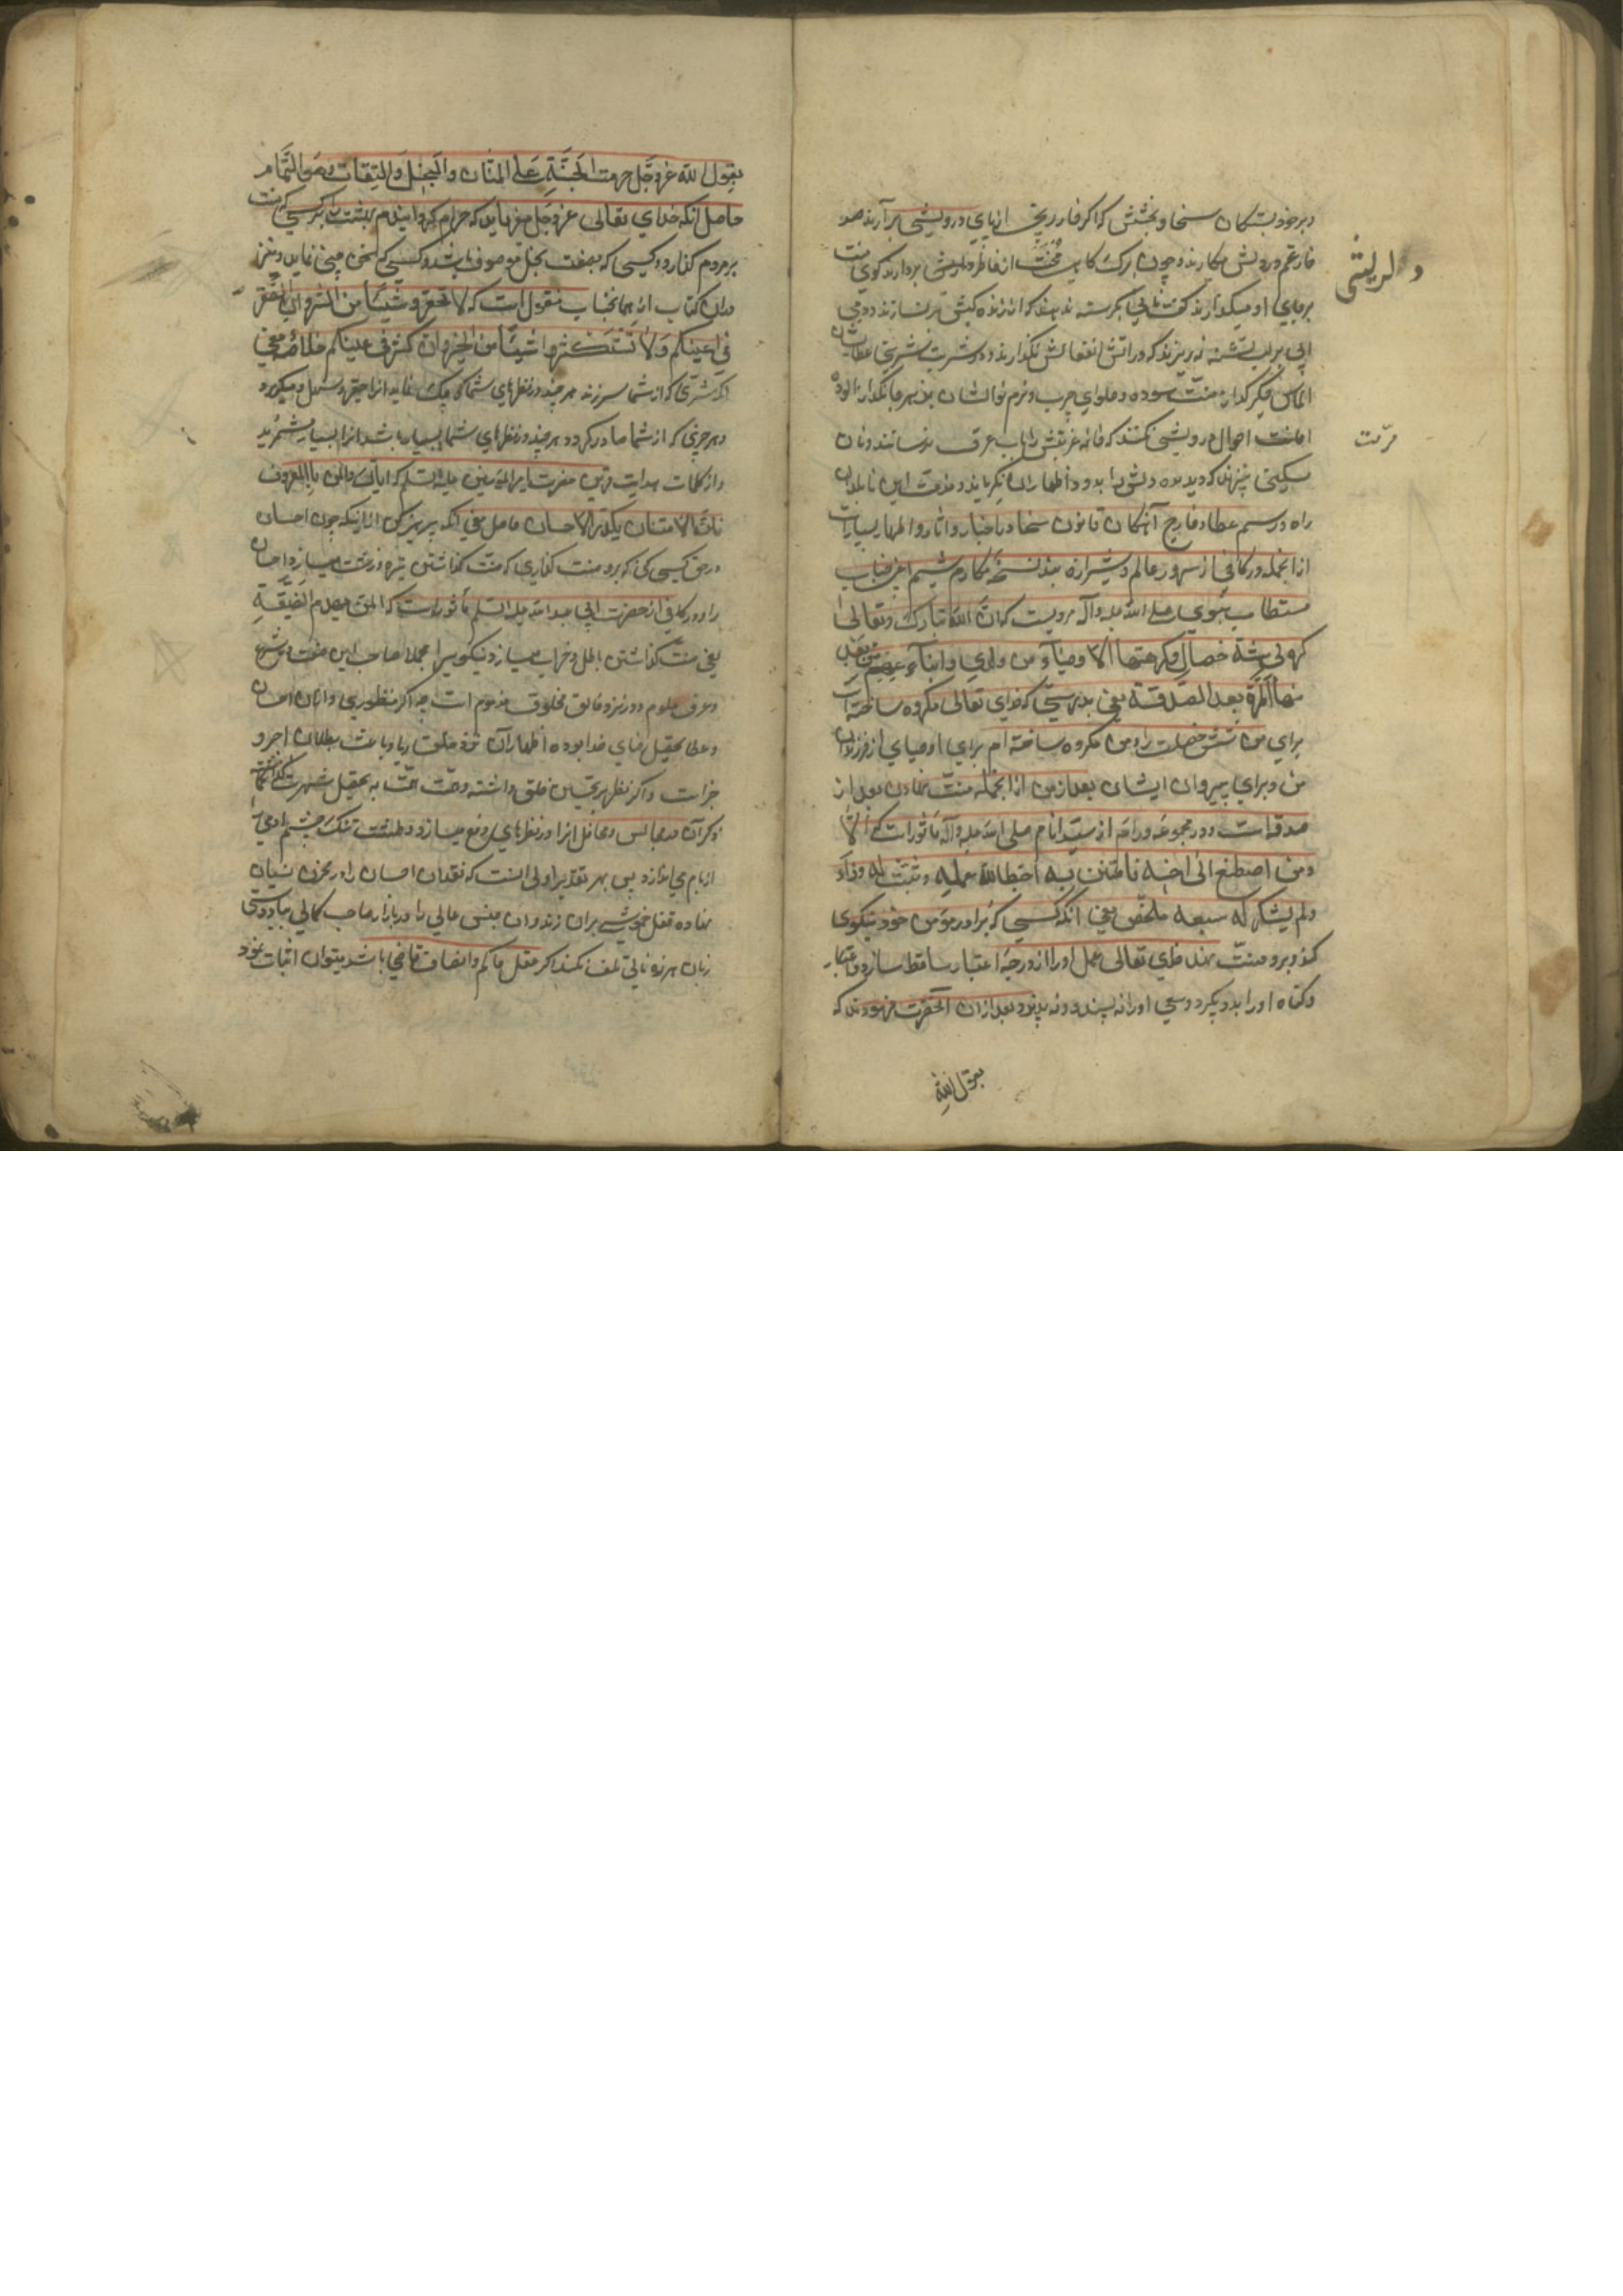 و بر خود بستگان سخا و بخشش که اگر خار رنجی از پای درویشی برآرند صد
خار غم در دلش میکارند و چون ترک کاه محنت از خاطر دلریشی بردارند کوی منت
بر پای او میگذارند نانی بگرسنه ندهند که از زنده کیش سیر نسازند و دمی
آبی بر لب تشنه نریزند که در آتش انفعالش نگدازند و شربت شربتی عطاشان
الماس جگر گداز منت سوده و حلوای چرب و نرم نوالشان بزهر جانگداز آلوده
اعانت احوال درویشی نکنند که خانه عزتش را بآب عرق نرسانند و نان
بمسکینی چنان که دیده دلش را بدود اظهار آن نگریانند و مذمت این نابلدان
راه و رسم عطا و خارج آهنگان قانون سخا در اخبار و آثار و اظهار بسیارست
از انجمله در کافی از سرور عالم و شیرازه بند نسخه مکارم شیم اعنی جناب
مستطاب نبوی صلی الله علیه وآله مرویست که ان الله تبارک وتعالی
کره لی ستة خصال وکرهتها الاوصیاء من ولدی واتباعهم من بعدی
منها المن بعد الصدقة یعنی بدرستی که خدای تعالی مکروه ساخته است
برای من شش خصلت را و من مکروه ساخته ام برای اوصیای از فرزندان
من و برای پیروان ایشان بعد از من از انجمله منت نهادن بعد از
صدقه است و در مجموعه ورام از سید انام صلی الله علیه وآله ماثورست که الا
ومن اصطنع الی اخیه فامتن به احبط الله عمله وثبت له وزره
ولم یشکر له سعیه ملخص یعنی آنکه کسی که ببرادر مؤمن خود نیکوی
کند و برو منت نهد خدای تعالی عمل او را از درجه اعتبار ساقط سازد
و گناه او را بدو پیگرد و سعی او را نه پسندد و نه پذیرد و بعد از ان آنحضرت فرمودند که
یقول الله
دلریشی
مرمت
یقول الله عز وجل حرمت الجنة علی المنان والبخیل والقتات وهو النمام
حاصل آنکه خدای تعالی عز وجل میفرماید که حرام گردانیدم بهشت را بر کسی که منت
بر مردم گذارد و کسی که بصفت بخل موصوف باشد و کسی که سخن چینی نماید و نیز
در ان کتاب از همانجناب منقول است که لا تحقروا شیئا من الشر وان صغر
فی اعینکم ولا تستکثروا شیئا من الخیر وان کثر فی اعینکم خلاصه معنی
آنکه شری که از شما سر زند هر چند در نظرهای شما کوچک نماید آنرا حقیر و سهل مگیرید
و هر خیری که از شما صادر گردد هر چند در نظرهای شما بسیار باشد آنرا بسیار مشمرید
و از کلمات هدایت قرین حضرت امیر المؤمنین علیه السلم که ایاک والمن بالمعروف
فان الامتنان یکدر الاحسان حاصل معنی آنکه پرهیز کن از اینکه چون احسان
در حق کسی کنی که برو منت گذاری که منت گذاشتن تیره و زشت میسازد احسان
را و در کافی از حضرت ابی عبد الله علیه السلم ماثورست که المن یهدم الصنیعة
یعنی منت گذاشتن باطل و خراب میسازد نیکویی را مجملا صاحب این صفت در شرع
و عرف ملوم و در نزد خالق و مخلوق مذموم است چه اگر منظور وی در آن احسان
و عطا تحصیل رضای خدا بوده اظهار آن نزد خلق ریا و باعث بطلان اجر و
جزاست و اگر نظر بتحسین خلق داشته و همت به تحصیل شهرت گماشته
ذکر آن در مجالس و محافل آنرا در نظرهای وقع میسازد و طشت تنک چشم او را
از بام می اندازد پس بهر تقدیر اولی آنست که نقدان احسان را در مخزن نسیان
نهاده قفل خموشی بران زند و ان جنس عالی را در بازار صاحب کمالی بیاد دوستی
زبان هرزه نالی تلف نکند اگر عقل حاکم و انصاف قاضی باشد میتوان اثبات نمود